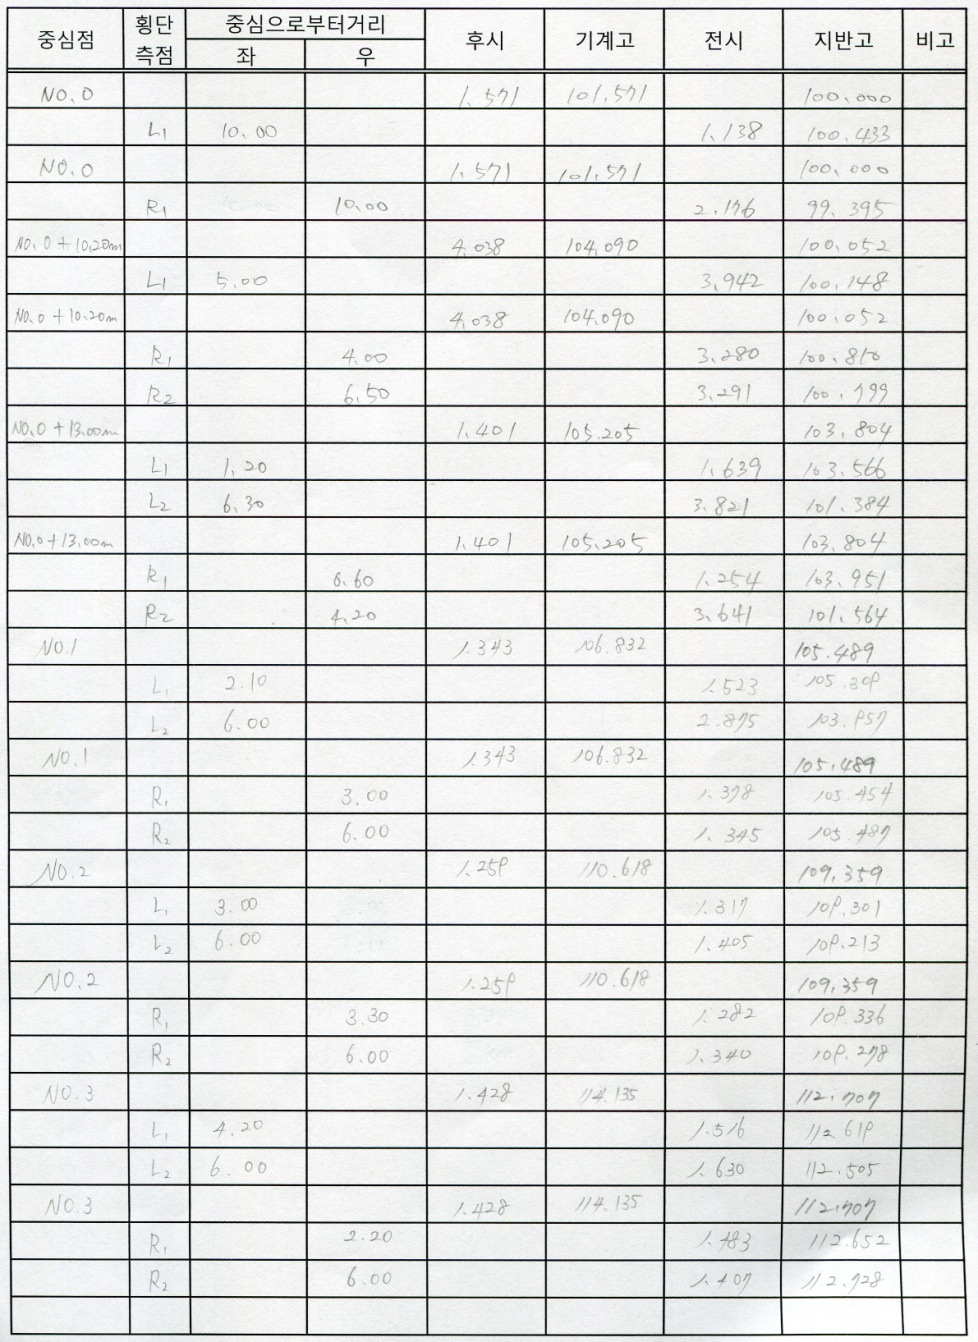 중심점 횡단측점 중심으로부터거리 좌 우 후시 기계고 전시 지반고 비고
NO.0 1.571 101.571 100.000
L1 10.00 1.138 100.433
NO.0 1.571 101.571 100.000
R1 10.00 2.176 99.395
NO.0+10.20m 4.038 104.090 100.052
L1 5.00 3.942 100.148
NO.0+10.20m 4.038 104.090 100.052
R1 4.00 3.280 100.810
R2 6.50 3.291 100.799
NO.0+13.00m 1.401 105.205 103.804
L1 1.20 1.639 103.566
L2 6.30 3.821 101.384
NO.0+13.00m 1.401 105.205 103.804
R1 0.60 1.254 103.951
R2 4.20 3.641 101.564
NO.1 1.343 106.832 105.489
L1 2.10 1.523 105.309
L2 6.00 2.875 103.957
NO.1 1.343 106.832 105.489
R1 3.00 1.378 105.454
R2 6.00 1.345 105.487
NO.2 1.259 110.618 109.359
L1 3.00 1.317 109.301
L2 6.00 1.405 109.213
NO.2 1.259 110.618 109.359
R1 3.30 1.282 109.336
R2 6.00 1.340 109.278
NO.3 1.428 114.135 112.707
L1 4.20 1.516 112.619
L2 6.00 1.630 112.505
NO.3 1.428 114.135 112.707
R1 2.20 1.483 112.652
R2 6.00 1.407 112.728